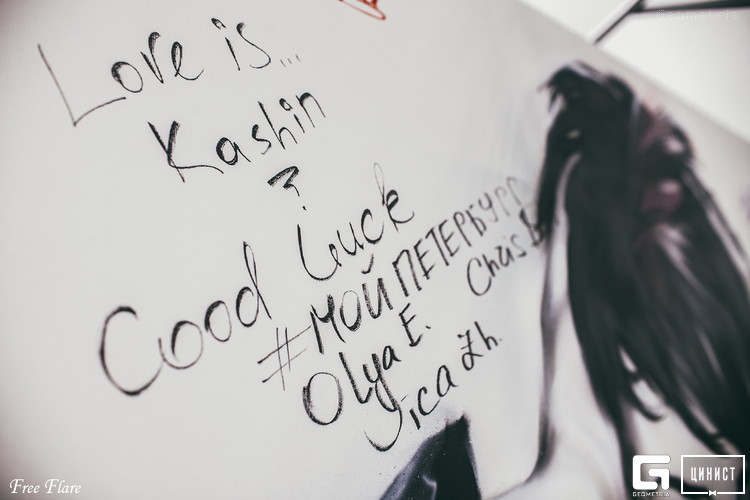 Love is...
Kashin
?
Good Luck
#МОЙПЕТЕРБУРГ
Olya E. Chris B
Jica Zh.
Free Flare
GEOMETRIA
ЦИНИСТ